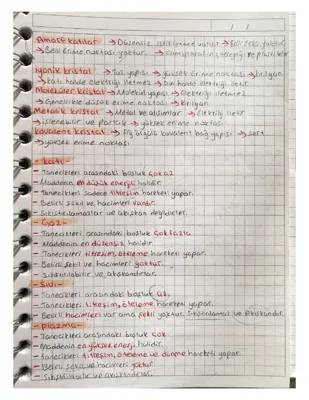 Amorf katılar → Düzensiz istiflenme vardır → Belli şekli yoktur
→ Belli erime noktası yoktur.
İyonik kristal → Tuz yapısı → yüksek erime noktası → kırılgan
→ katı halde elektriği iletmez → Sıvı halde elektriği iletir.
Moleküler kristal → Molekül yapısı → Elektriği iletmez
→ Genellikle düşük erime noktası → kırılgan
Metalik kristal → Metal ve alaşımlar → elektriği iletir
→ işlenebilir ve parlak → yüksek erime noktası
kovalent kristal → kovalent bağ yapısı → sert
→ yüksek erime noktası.
- Katı -
- Tanecikleri arasındaki boşluk çok az
- Maddenin en düşük enerji halidir.
- Tanecikleri sadece titreşim hareketi yapar.
- Belirli şekil ve hacimleri vardır.
- Sıkıştırılamazlar ve akışkan değildirler.
- Gaz -
- Tanecikleri arasındaki boşluk çok fazla
- Maddenin en düzensiz halidir.
- Tanecikleri titreşim, öteleme hareketi yapar.
- Belirli şekil ve hacimleri yoktur.
- Sıkıştırılabilir ve akışkandırlar.
- Sıvı -
- Tanecikleri arasındaki boşluk az.
- Tanecikleri titreşim, öteleme hareketi yapar.
- Belirli hacimleri var ama şekli yoktur. Sıkıştırılamaz ve akışkandır.
- Plazma -
- Tanecikleri arasındaki boşluk çok
- Maddenin en yüksek enerji halidir.
- Tanecikleri titreşim, öteleme ve dönme hareketi yapar.
- Belirli şekil ve hacimleri yoktur
- Sıkıştırılabilir ve akışkandırlar.